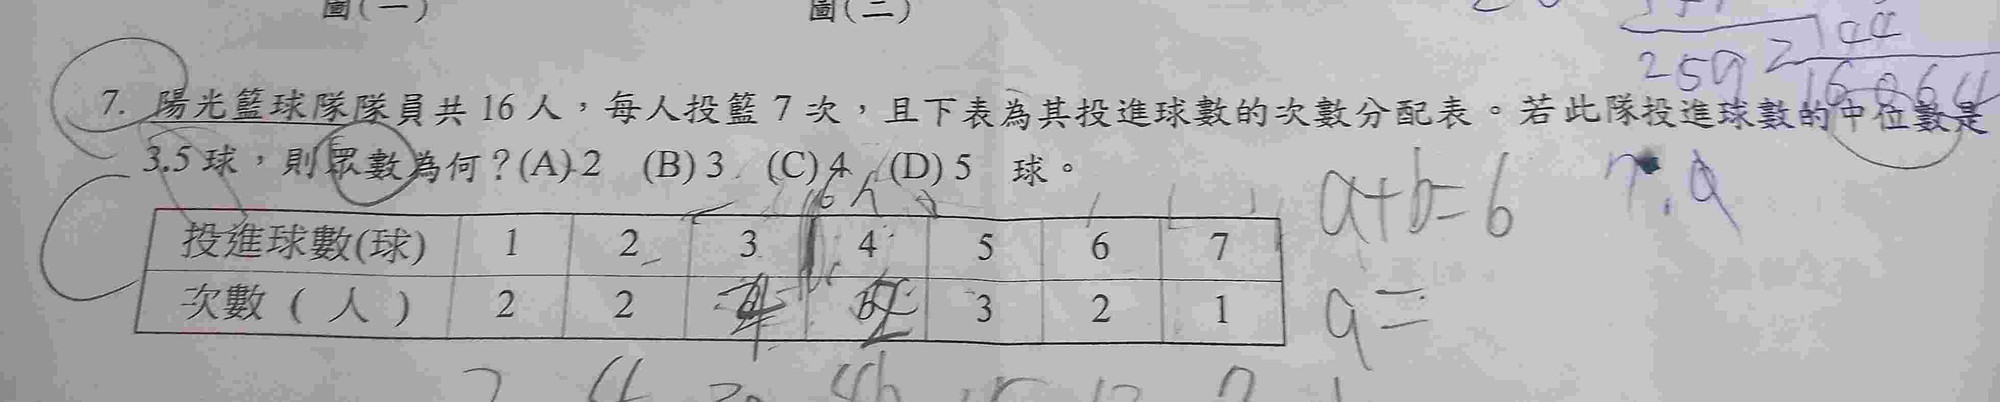 圖(一) 圖(二)
7. 陽光籃球隊隊員共 16 人，每人投籃 7 次，且下表為其投進球數的次數分配表。若此隊投進球數的中位數是
3.5 球，則眾數為何？(A) 2 (B) 3 (C) 4 (D) 5 球。
6人
投進球數(球) 1 2 3 4 5 6 7
次數（人） 2 2 4 2 3 2 1
a+b=6
a=